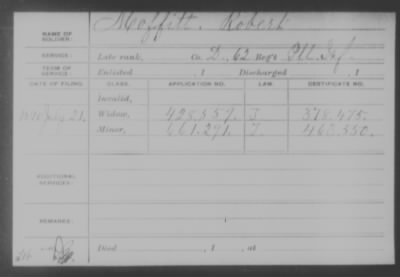 NAME OF SOLDIER: Moffitt, Robert
SERVICE: Late rank, Co. D, 62 Reg't Ill. Inf
TERM OF SERVICE: Enlisted , 1 Discharged , 1
DATE OF FILING. CLASS. APPLICATION NO. LAW. CERTIFICATE NO.
Invalid,
1890 July 21. Widow, 428.557. J 378.475.
Minor, 661.291. J 463.550.
ADDITIONAL SERVICES:
REMARKS:
Died , 1 , at